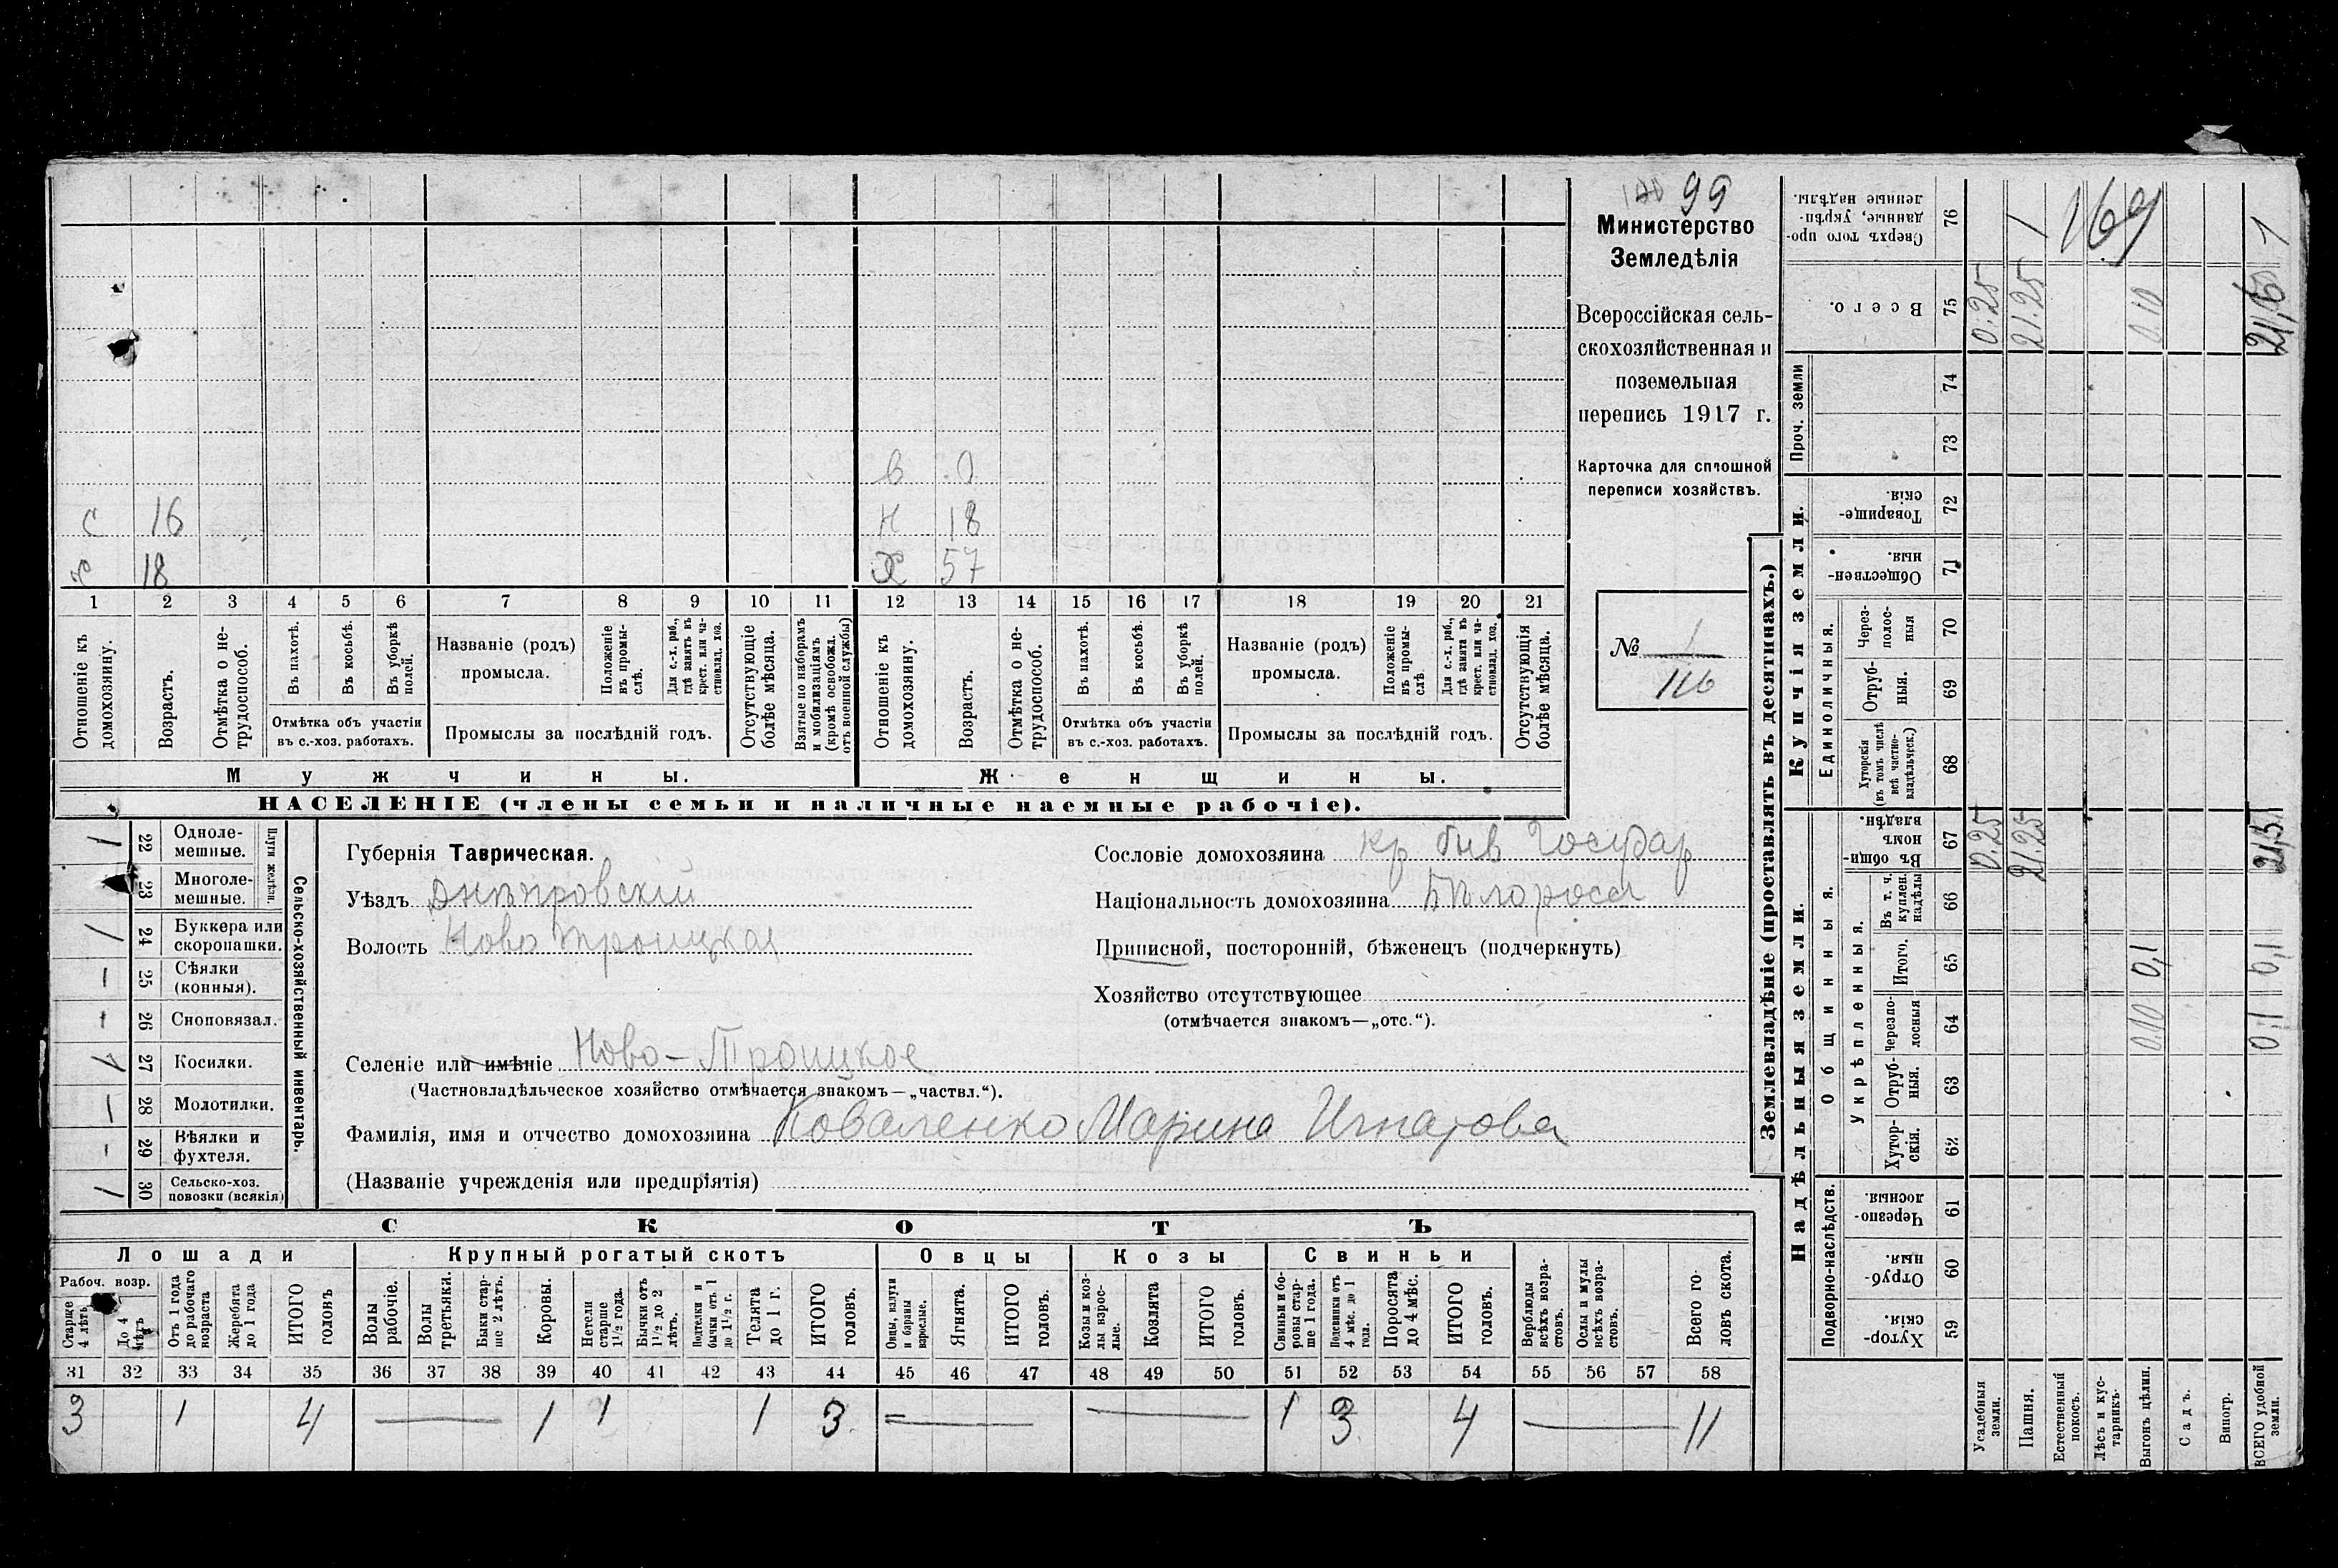 99
Министерство
Земледѣлія
Всероссійская сель-
скохозяйственная и
поземельная
перепись 1917 г.
Карточка для сплошной
переписи хозяйствъ.
№ 1
116
в
С 16
Н 18
18
Х 57
1 2 3 4 5 6 7 8 9 10 11 12 13 14 15 16 17 18 19 20 21
Отношеніе къ домохозяину.
Возрастъ.
Отмѣтка о не-трудоспособ.
Въ пахотѣ.
Въ косьбѣ.
Въ уборкѣ полей.
Отмѣтка объ участіи
въ с.-хоз. работахъ.
Названіе (родъ)
промысла.
Положеніе въ промы-слѣ.
Для с.-х. раб., гдѣ занятъ въ крест. или ча-стновлад. хоз.
Промыслы за послѣдній годъ.
Отсутствующіе болѣе мѣсяца.
Взятые по наборамъ и мобилизаціямъ (кромѣ освобожд. отъ военной службы)
Отношеніе къ домохозяину.
Возрастъ.
Отмѣтка о не-трудоспособ.
Въ пахотѣ.
Въ косьбѣ.
Въ уборкѣ полей.
Отмѣтка объ участіи
въ с.-хоз. работахъ.
Названіе (родъ)
промысла.
Положеніе въ промы-слѣ.
Для с.-х. раб., гдѣ занята въ крест. или ча-стновлад. хоз.
Промыслы за послѣдній годъ.
Отсутствующія болѣе мѣсяца.
Мужчины.
Женщины.
НАСЕЛЕНІЕ (члены семьи и наличные наемные рабочіе).
Сельско-хозяйственный инвентарь.
Плуги желѣзн.
1 22 Одноле-мешные.
23 Многоле-мешные.
/ 24 Буккера или скоропашки.
– 25 Сѣялки (конныя).
26 Сноповязал.
27 Косилки.
– 28 Молотилки.
– 29 Вѣялки и фухтеля.
/ 30 Сельско-хоз. повозки (всякія)
Губернія Таврическая.
Уѣздъ Днѣпровскій
Волость Ново Троицкая
Селеніе или имѣніе Ново-Троицкое
(Частновладѣльческое хозяйство отмѣчается знакомъ—„частвл.“).
Фамилія, имя и отчество домохозяина Коваленко Марина Игнатова
(Названіе учрежденія или предпріятія)
Сословіе домохозяина кр быв Государ
Національность домохозяина Бѣлоросс
Приписной, посторонній, бѣженецъ (подчеркнуть)
Хозяйство отсутствующее
(отмѣчается знакомъ—„отс.“).
СКОТЪ
Лошади
Крупный рогатый скотъ
Овцы
Козы
Свиньи
Рабоч. возр.
Старше 4 лѣтъ
До 4 лѣтъ
Отъ 1 года до рабочаго возраста
Жеребята до 1 года
ИТОГО головъ
Волы рабочіе.
Волы третьяки.
Быки стар-ше 2 лѣтъ.
Коровы.
Нетели старше 1½ года.
Бычки отъ 1½ до 2 лѣтъ.
Подтелки и бычки отъ 1 до 1½ г.
Телята до 1 г.
ИТОГО головъ.
Овцы, валухи и бараны взрослые.
Ягнята.
ИТОГО головъ.
Козы и коз-лы взрос-лые.
Козлята
ИТОГО головъ.
Свиньи и бо-ровы стар-ше 1 года.
Подсвинки отъ 4 мѣс. до 1 года.
Поросята до 4 мѣс.
ИТОГО головъ.
Верблюды всѣхъ возра-стовъ.
Ослы и мулы всѣхъ возра-стовъ.
Всего го-ловъ скота.
31 32 33 34 35 36 37 38 39 40 41 42 43 44 45 46 47 48 49 50 51 52 53 54 55 56 57 58
3 1 4 — 1 1 1 3 — — 1 3 4 — 11
Землевладѣніе (проставлять въ десятинахъ.)
Надѣльныя земли.
Купчія земли.
Проч. земли
Подворно-наслѣдств.
Общинныя.
Укрѣпленныя.
Единоличныя.
Сверхъ того про-данные, укрѣп-ленные надѣлы. 76 / 169 1
Всего. 75 0.25 21.25 0.10 21,60
74
73
Товарище-скія. 72
Обществен-ныя. 71
Через-полос-ныя 70
Отруб-ныя. 69
Хуторскія (въ томъ числѣ всѣ частно-владѣльческ.) 68
Въ общи-номъ владѣн. 67 0.25 21.25 21,5
Въ т. ч. куплен. надѣлы 66
Итого. 65 0,1 0,1
Черезпо-лосныя 64 0.10 0,1
Отруб-ныя. 63
Хутор-скія. 62
Черезпо-лосныя. 61
Отруб-ныя. 60
Хутор-скія. 59
Усадебныя земли.
Пашня.
Естественный покосъ.
Лѣсъ и кус-тарникъ.
Выгонъ цѣлин.
Садъ.
Виногр.
ВСЕГО удобной земли.